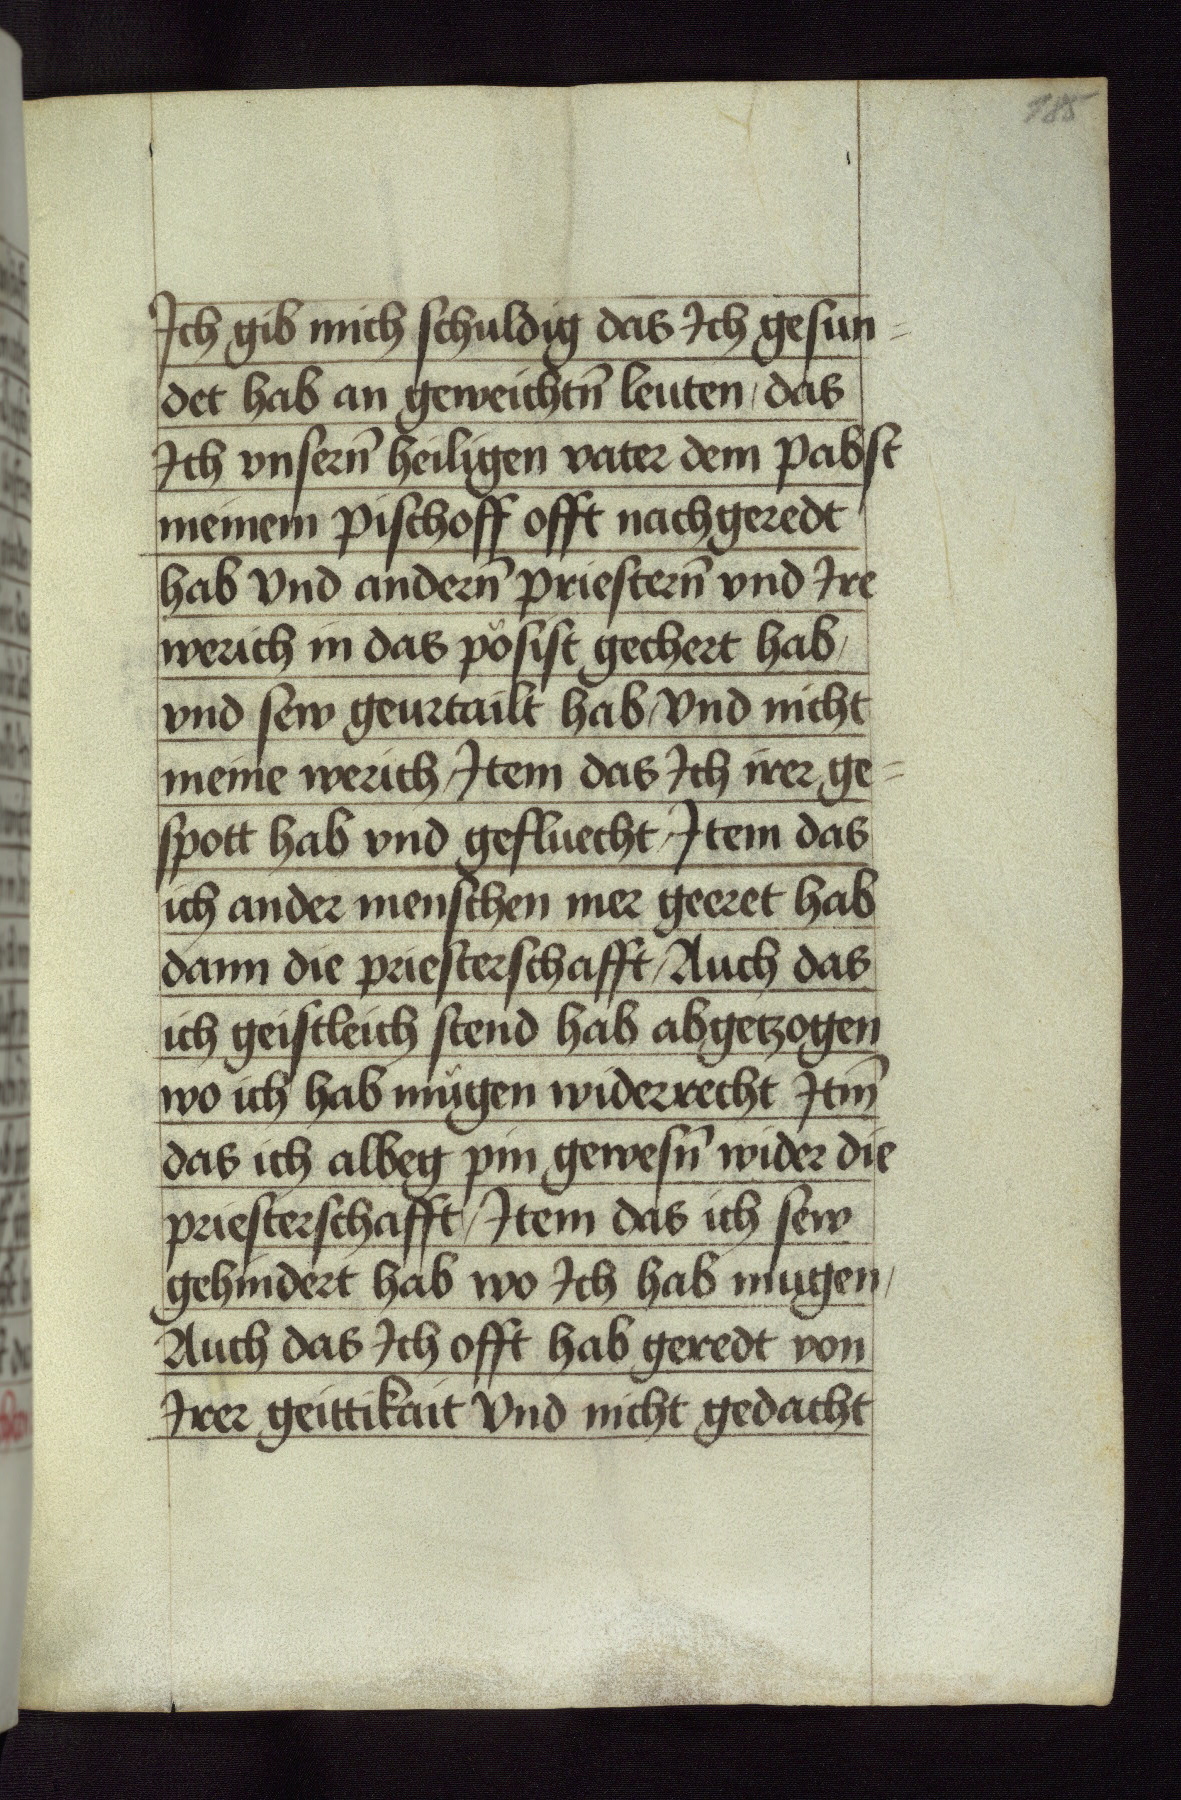 185
Ich gib mich schuldig das Ich gesun=
det hab an geweichtn̄ leuten / das
Ich vnsern̄ heiligen vater dem Pabst
meinem Pischoff offt nachgeredt
hab Vnd andern̄ priestern̄ vnd Ire
werich in das pösist gechert hab /
vnd sew geurtailt hab / Vnd nicht
meine werich / Item das Ich irer ge=
spott hab vnd gefluecht / Item das
ich ander menschen mer geeret hab
dann die priesterschafft / Auch das
ich geistleich stend hab abgetzogen
wo ich hab mügen widerrecht Itm̄
das ich albeg pin gewesn̄ wider die
priesterschafft / Item das ich sew
gehindert hab wo Ich hab mugen /
Auch das Ich offt hab geredt von
Irer geittikait Vnd nicht gedacht